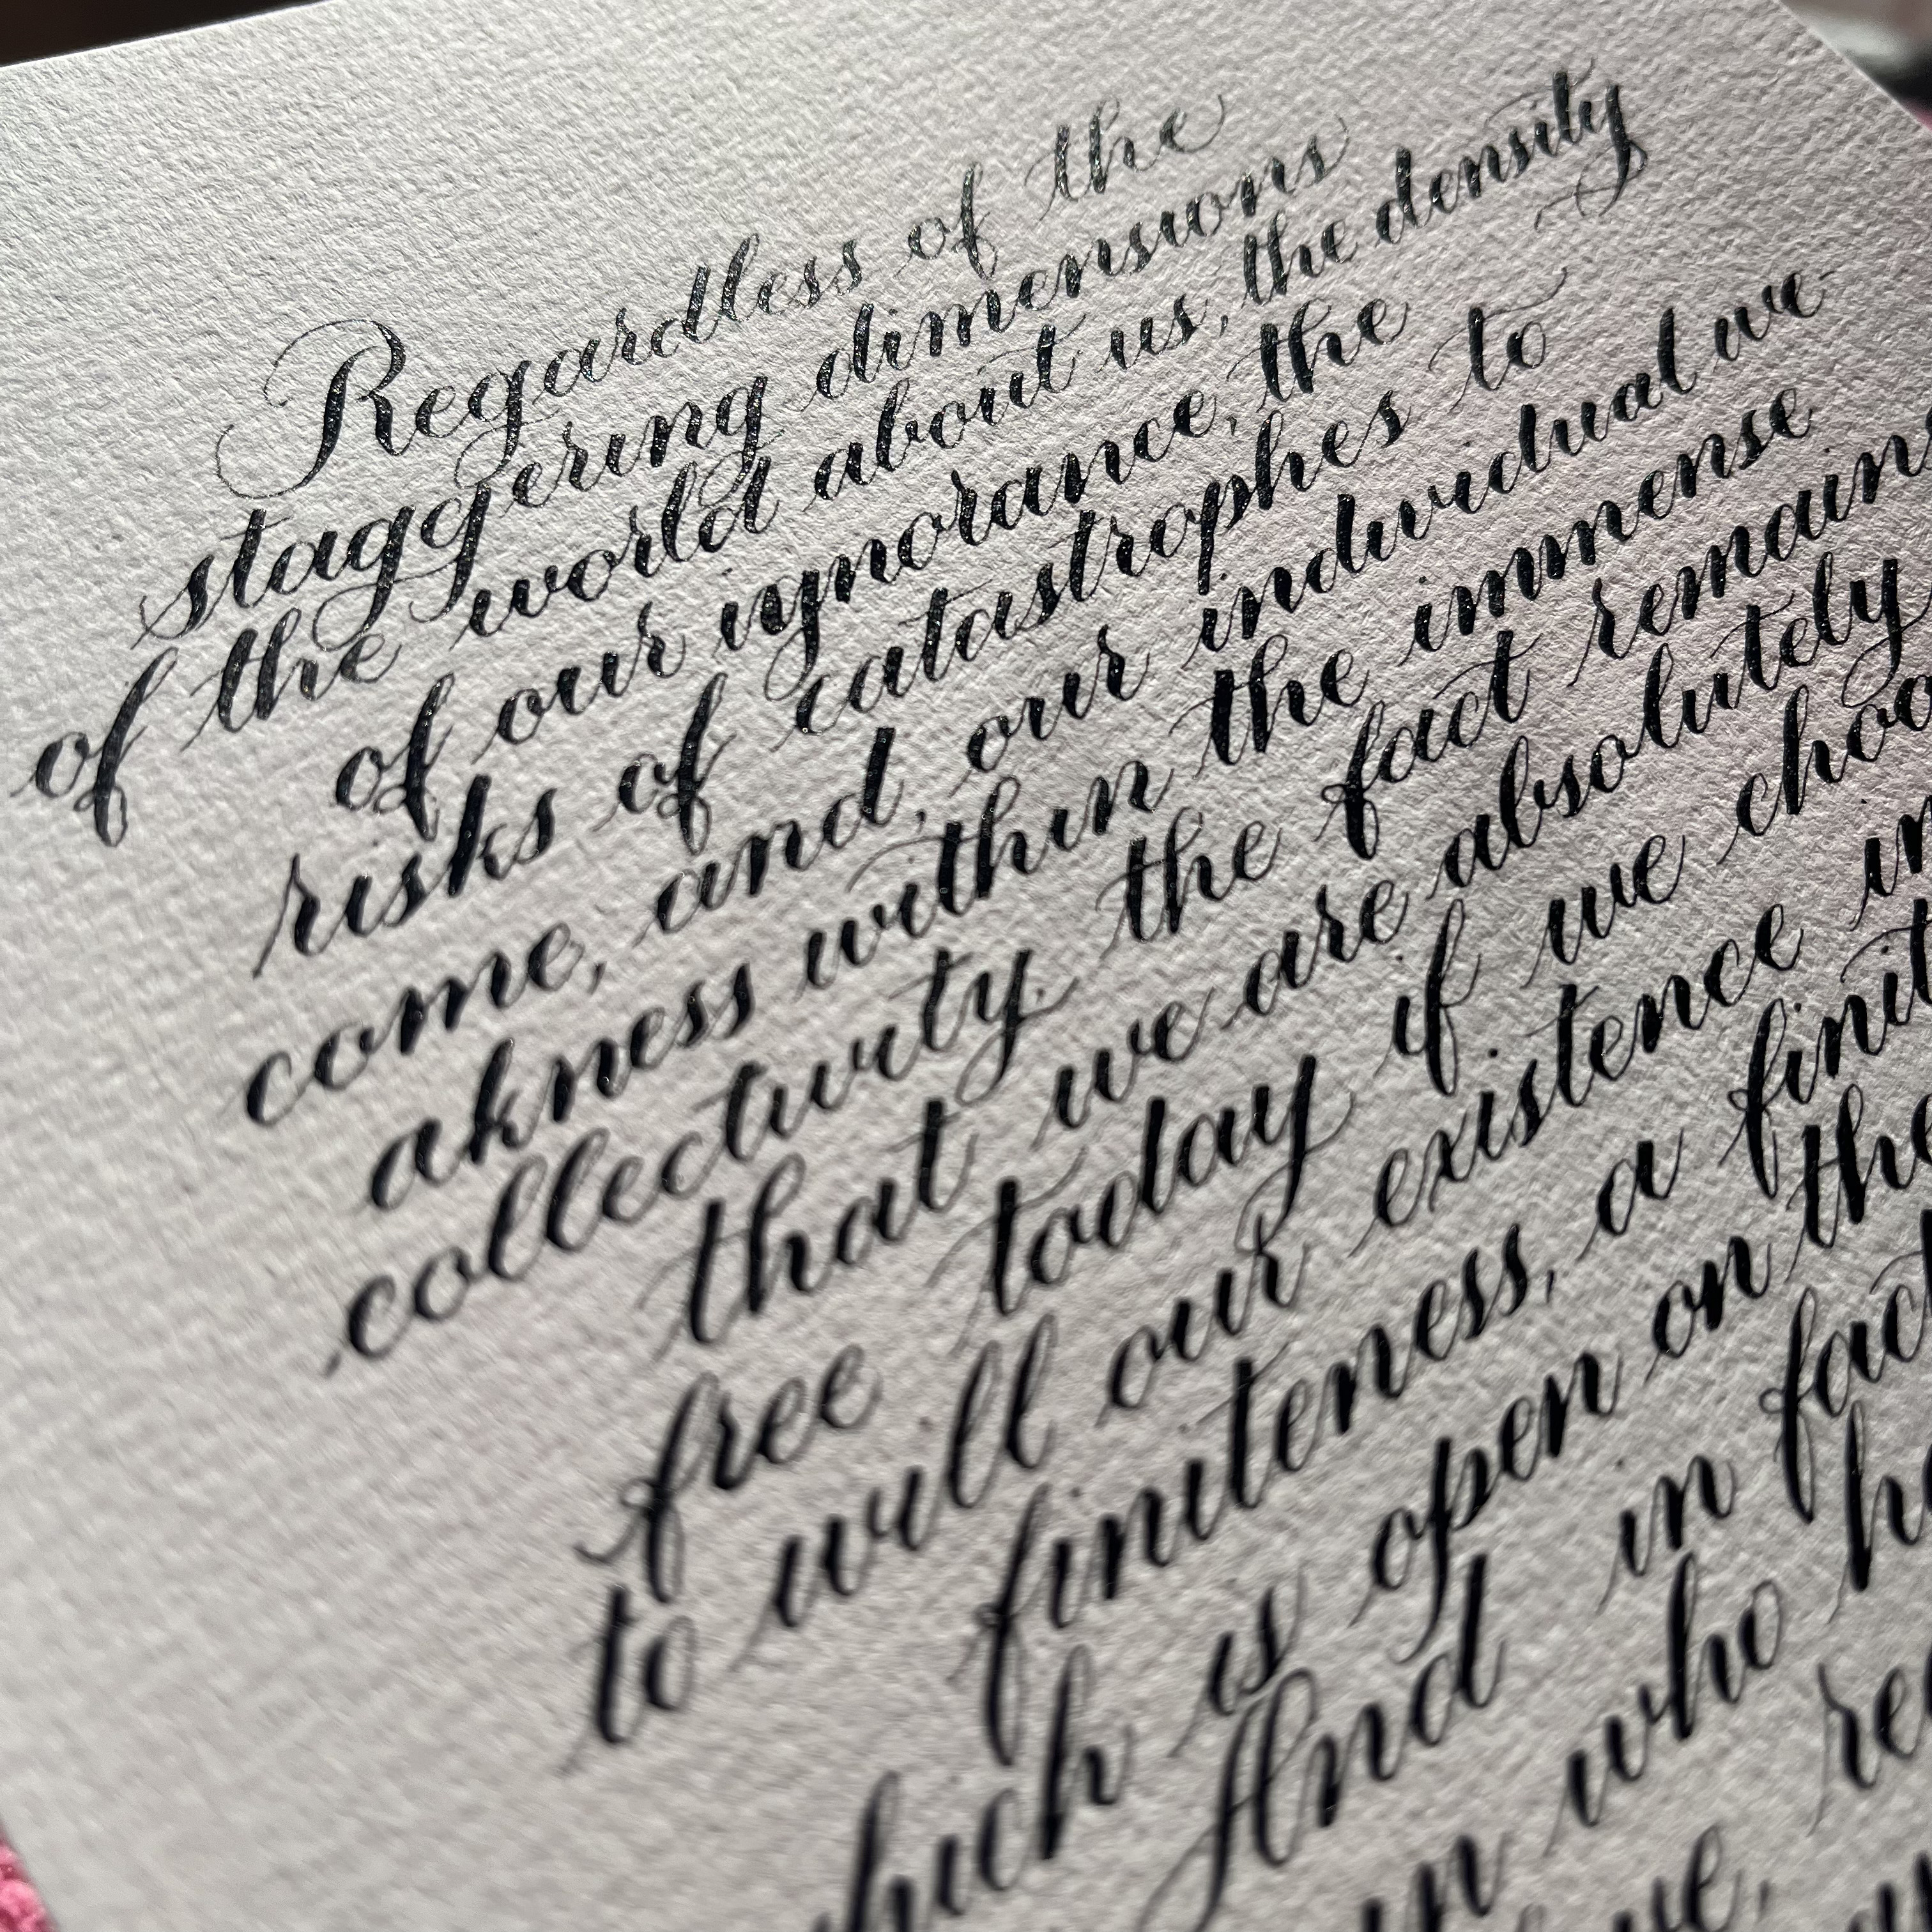 Regardless of the
staggering dimensions
of the world about us, the density
of our ignorance, the
risks of catastrophes to
come, and, our individual we-
akness within the immense
collectivity, the fact remain
that we are absolutely
free today if we choo
to will our existence in
finiteness, a finit
hich is open on the
And in fact
in who h
ue, re